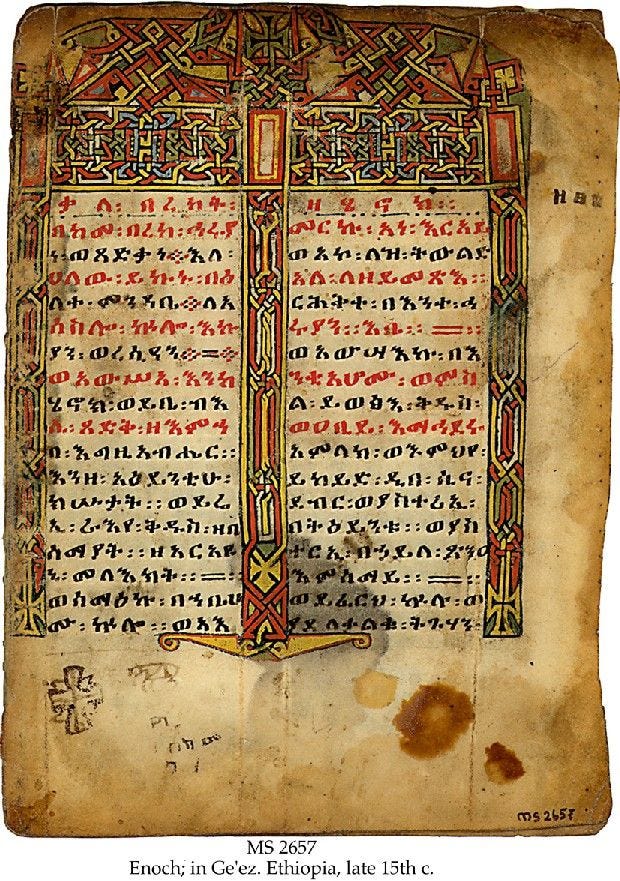 ቃለ፡ በረከት፡
በከመ፡ ባረከ፡ ኅሩያ
ነ፡ ወጻድቃነ፨ እለ፡
ሀለው፡ ይኩኑ፡ በዕ
ለተ፡ ምንዳቤ፨ ለአ
ሰስሎ፡ ኵሎ፡ እኩ
ያን፡ ወረሲዓን፨=፨
ወአውሥአ፡
ሄኖክ፡ ወይቤ፡ ብእ
ሲ፡ ጻድቅ፡ ዘእምኀ
በ፡ እግዚአብሔር፡፡
እንዘ፡ አዕይንቲሁ፡
ክሡታት፡፡ ወይሬ
ኢ፡ ራእየ፡ ቅዱስ፡ ዘበ
ሰማያት፡፡ ዘአርአዩ
ኒ፡ መላእክት፡፡=፡፡
ወሰማዕኩ፡ በኀቤሆ
ሙ፡ ኵሎ፡፡ ወአእ
ዘሄኖክ፡
መርኩ፡ አነ፡
ወአኮ፡ ለዝ፡ ትውልድ
አላ፡ ለዘይመጽኡ፡
በእንተ፡ ኅ
ሩያን፡፡ እቤ፡፡ =፡፡
ወአውሣእኩ፡ በእ
ንቲአሆሙ፡ ወምስ
ለ፡ ይወፅእ፡ ቅዱስ፡
ወዐቢይ፡ እማኅደሩ፡
አምላክ፡ ወእምህየ፡
ይከይድ፡ ዲበ፡ ሲና፡
ደብር፡ ወያስተርኢ፡
በትዕይንቱ፡፡ ወያስ
ተርኢ፡ በኀይለ፡ ጽንዐ
እምሰማይ፡፡ =፡፡
ወይፈርህ፡ ኵሉ፡ ወ
ያደለቀልቁ፡ ትጉሃን፡
MS 2657
MS 2657
Enoch; in Ge'ez. Ethiopia, late 15th c.